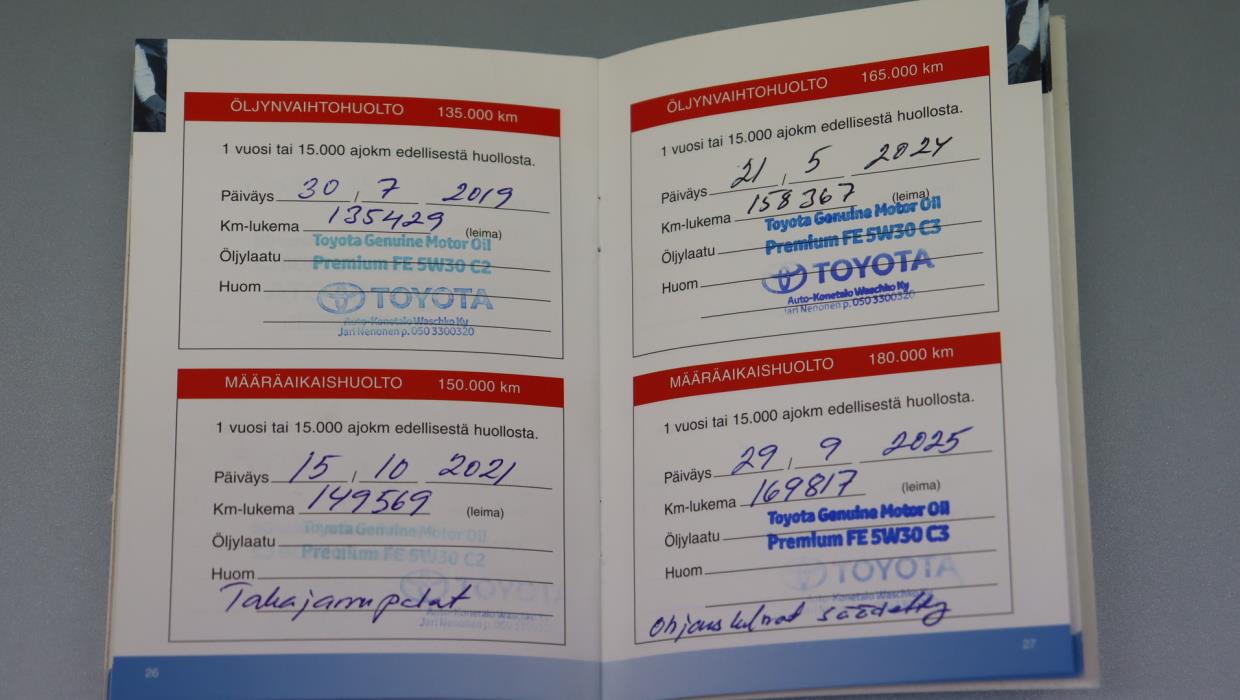 ÖLJYNVAIHTOHUOLTO 135.000 km
1 vuosi tai 15.000 ajokm edellisestä huollosta.
Päiväys 30 / 7 2019
Km-lukema 135429 (leima)
Toyota Genuine Motor Oil
Öljylaatu Premium FE 5W30 C2
Huom TOYOTA
Auto-Konetalo Waschko Ky
Jari Nenonen p. 050 3300320
MÄÄRÄAIKAISHUOLTO 150.000 km
1 vuosi tai 15.000 ajokm edellisestä huollosta.
Päiväys 15 / 10 2021
Km-lukema 149569 (leima)
Toyota Genuine Motor Oil
Öljylaatu Premium FE 5W30 C2
Huom TOYOTA
Takajarrupalat
Auto-Konetalo Waschko Ky
Jari Nenonen p. 050 3300320
26
ÖLJYNVAIHTOHUOLTO 165.000 km
1 vuosi tai 15.000 ajokm edellisestä huollosta.
Päiväys 21 / 5 2024
Km-lukema 158367 (leima)
Toyota Genuine Motor Oil
Öljylaatu Premium FE 5W30 C3
Huom TOYOTA
Auto-Konetalo Waschko Ky
Jari Nenonen p. 050 3300320
MÄÄRÄAIKAISHUOLTO 180.000 km
1 vuosi tai 15.000 ajokm edellisestä huollosta.
Päiväys 29 / 9 2025
Km-lukema 169817 (leima)
Toyota Genuine Motor Oil
Öljylaatu Premium FE 5W30 C3
Huom TOYOTA
Auto-Konetalo Waschko Ky
Ohjauskulmat säädetty
27